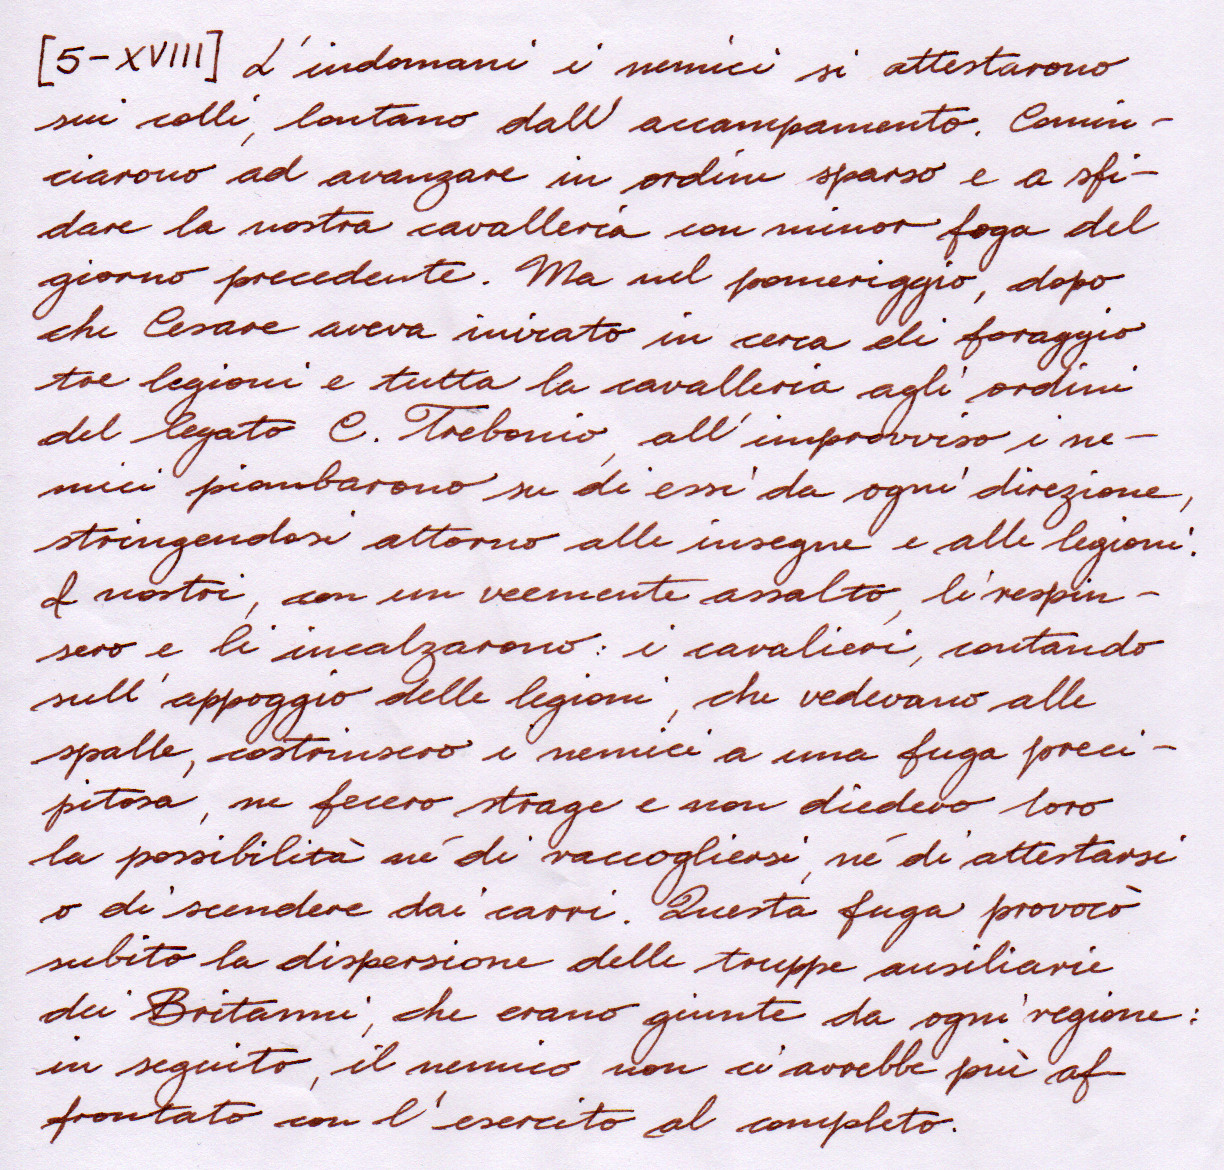 [5-XVIII] L'indomani i nemici si attestarono
sui colli, lontano dall'accampamento. Comin-
ciarono ad avanzare in ordine sparso e a sfi-
dare la nostra cavalleria con minor foga del
giorno precedente. Ma nel pomeriggio, dopo
che Cesare aveva inviato in cerca di foraggio
tre legioni e tutta la cavalleria agli ordini
del legato C. Trebonio, all'improvviso i ne-
mici piombarono su di essi da ogni direzione,
stringendosi attorno alle insegne e alle legioni.
I nostri, con un veemente assalto, li respin-
sero e li incalzarono: i cavalieri, contando
sull'appoggio delle legioni, che vedevano alle
spalle, costrinsero i nemici a una fuga preci-
pitosa, ne fecero strage e non diedero loro
la possibilità né di raccogliersi, né di attestarsi
o di scendere dai carri. Questa fuga provocò
subito la dispersione delle truppe ausiliarie
dei Britanni, che erano giunte da ogni regione:
in seguito, il nemico non ci avrebbe più af-
frontato con l'esercito al completo.